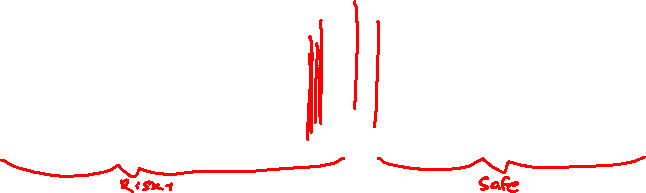 Risky Safe